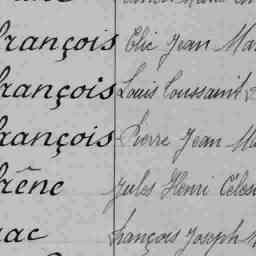 François Elie Jean Ma
François Louis Toussaint
François Pierre Jean M
Frêne Jules Henri Céles
ac François Joseph